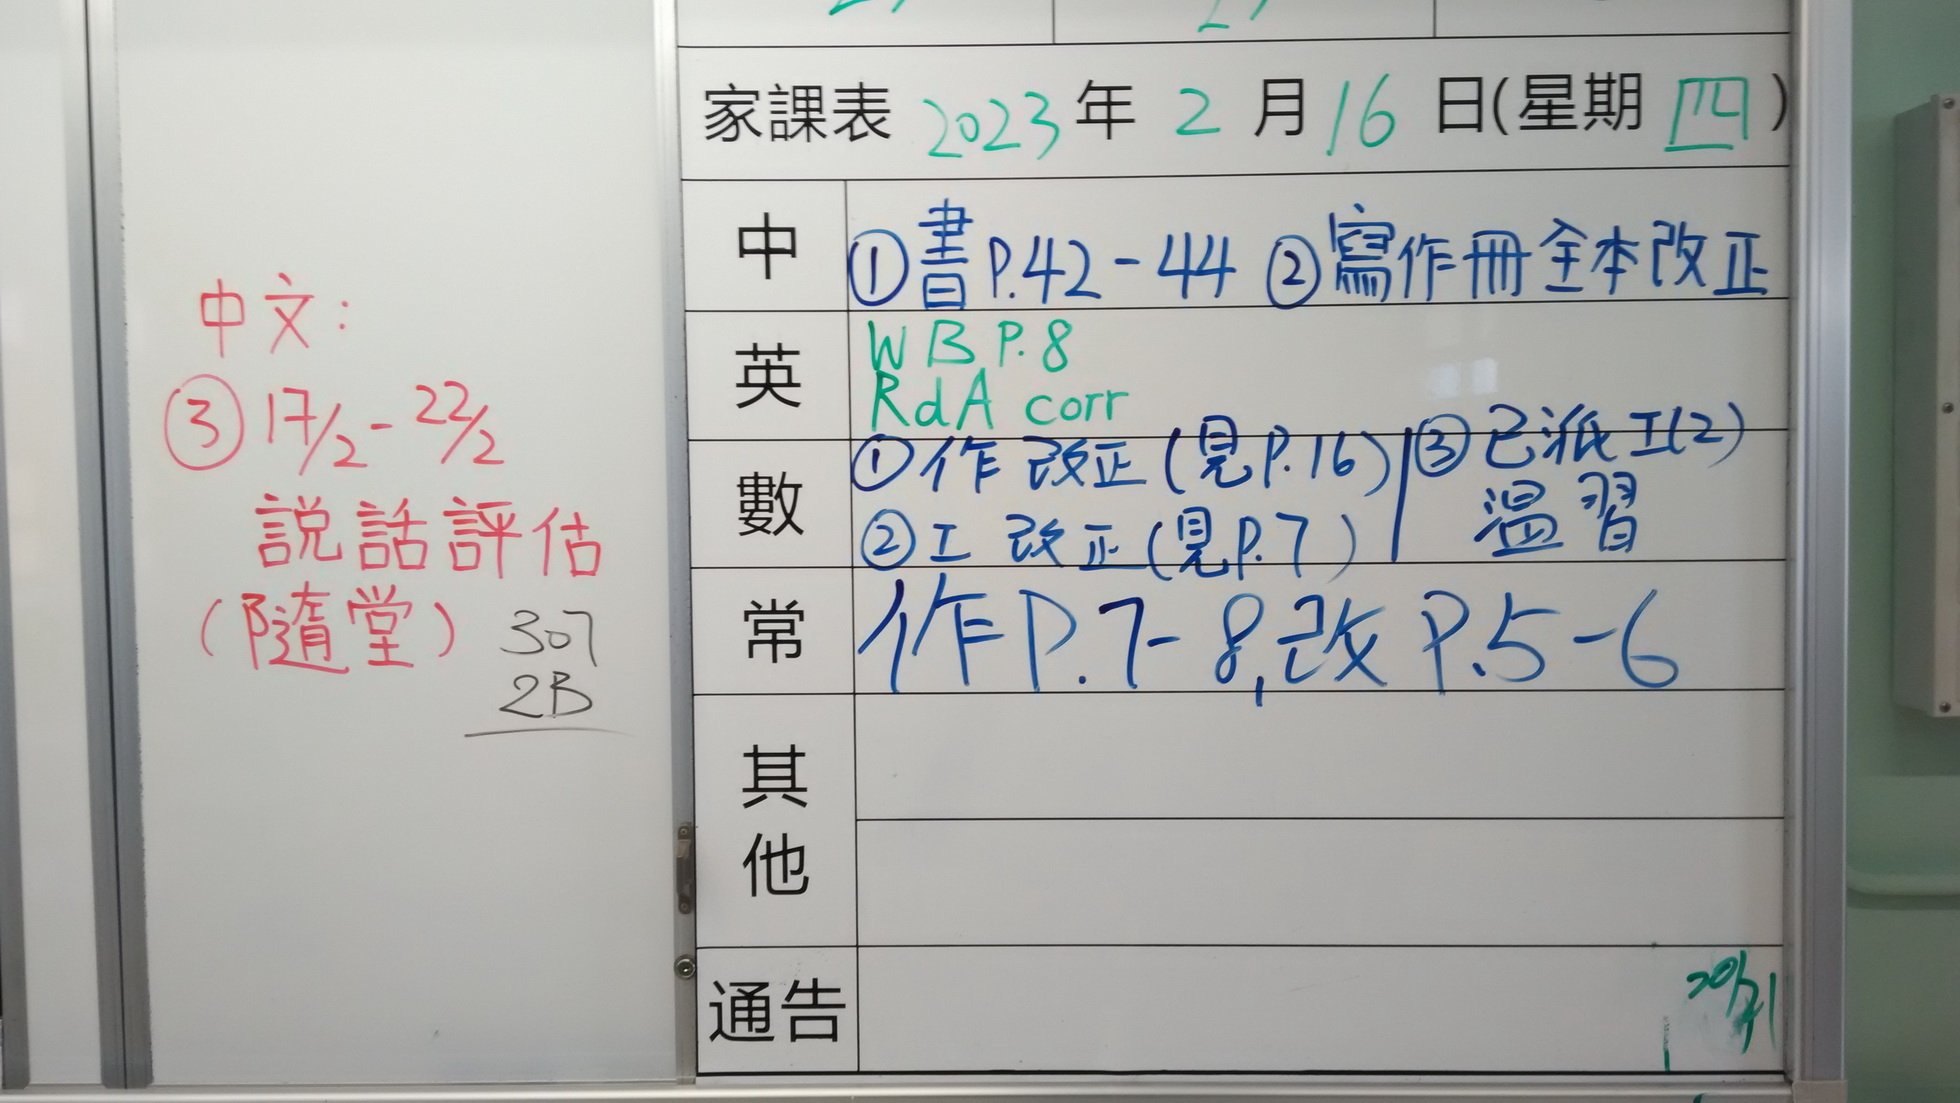 中文：
③ 17/2 - 22/2
説話評估
（隨堂）
307
2B
家課表 2023 年 2 月 16 日(星期 四)
中 ①書P.42-44 ②寫作冊全本改正
英 WB P.8
RdA corr
數 ①作 改正(見P.16) ③已派工(2)
②工 改正(見P.7) 溫習
常 作P.7-8,改P.5-6
其他
通告